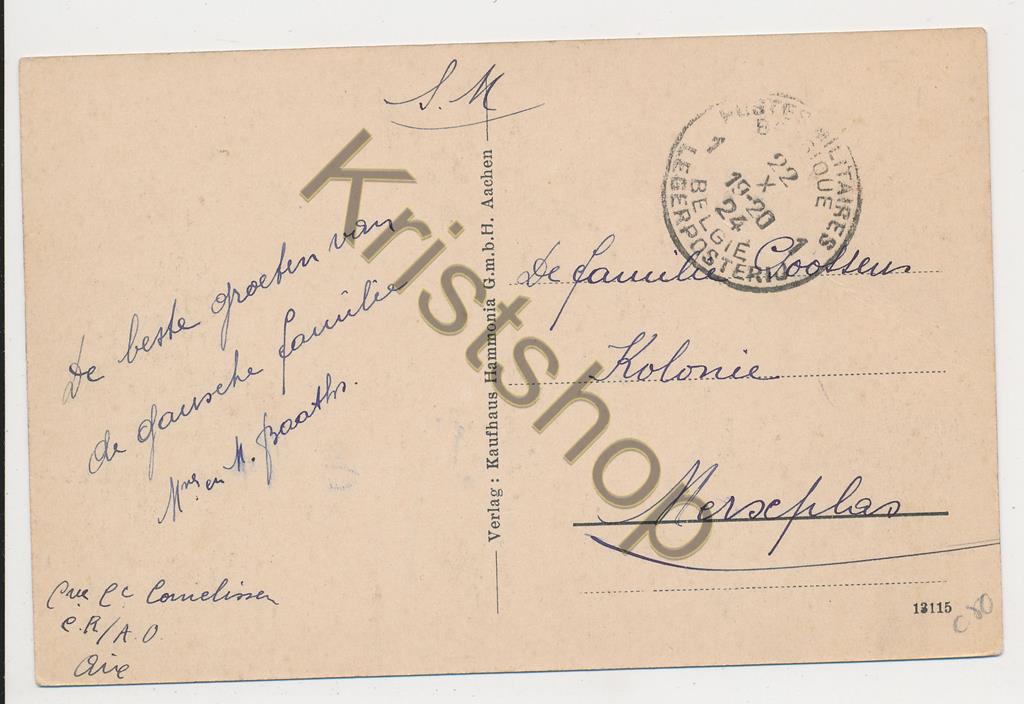 S.M
De beste groeten van
de gansche familie
Mme en M. Baaths.
Cornelissen
C.R/A.O.
Aix
Verlag: Kaufhaus Hammonia G.m.b.H. Aachen
POSTES MILITAIRES
BELGIQUE
1 22 1
X
19-20
24
BELGIË
LEGERPOSTERIJ
De familie Clootsens
Kolonie
Merxplas
13115
c80
Kristshop